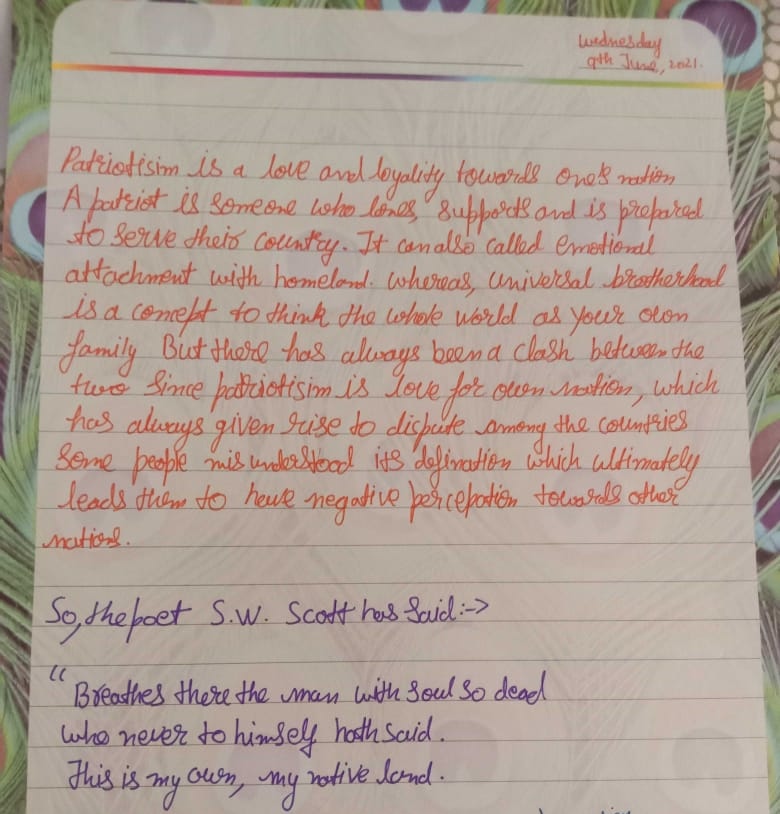 Wednesday
9th June, 2021.
Patriotisim is a love and loyality towards one's nation
A patriot is someone who loves, supports and is prepared
to serve their country. It can also called emotional
attachment with homeland. whereas, universal brotherhood
is a concept to think the whole world as your own
family But there has always been a clash between the
two since patriotisim is love for own nation, which
has always given rise to dispute among the countries
Some people misunderstood its defination which ultimately
leads them to have negative percepation towards other
nations.
So, the poet S.W. Scott has said:->
"Breathes there the man with soul so dead
who never to himself hath said.
This is my own, my native land.